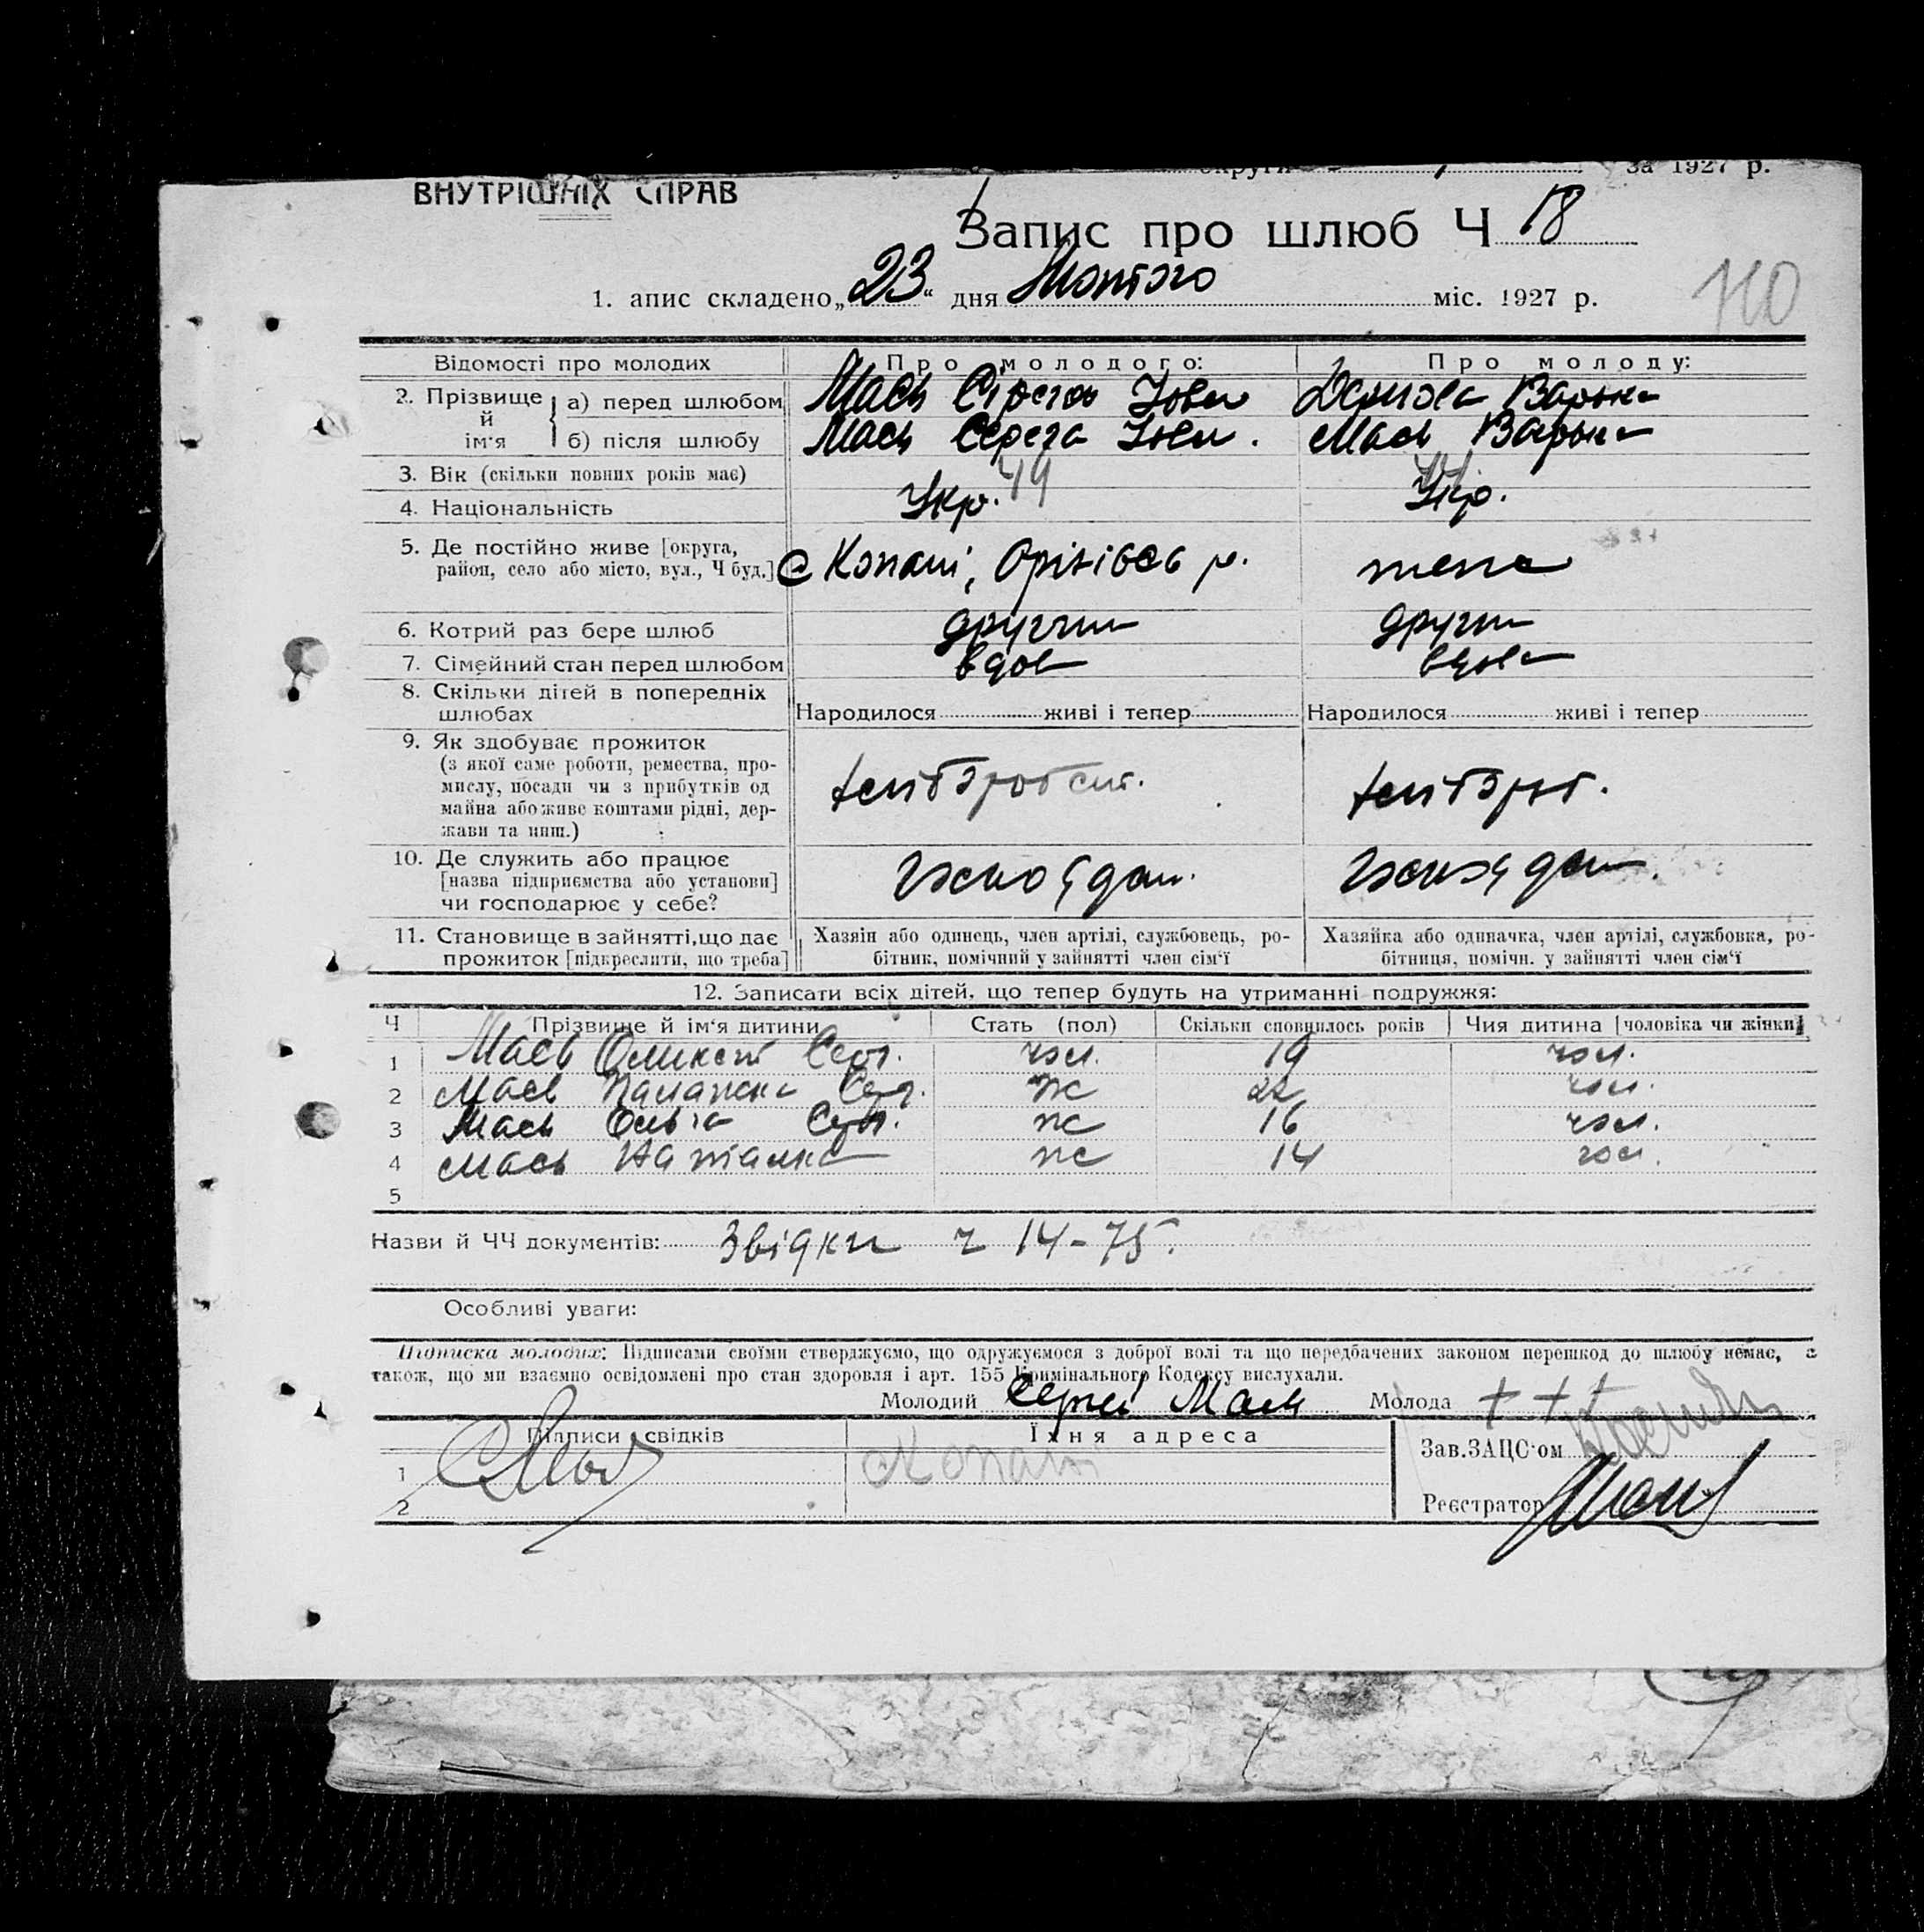 округи за 1927 р.
ВНУТРІШНІХ СПРАВ
Запис про шлюб Ч 18
1. апис складено „23“ дня Лютого міс. 1927 р.
110
Відомості про молодих Про молодого: Про молоду:
2. Прізвище й ім'я
а) перед шлюбом Мась Варька
б) після шлюбу Мась Мась Варька
3. Вік (скільки повних років має) 49
4. Національність Укр. Укр.
5. Де постійно живе [округа, район, село або місто, вул., Ч буд.] с Копані, Оріхівсь р.
6. Котрий раз бере шлюб другий другий
7. Сімейний стан перед шлюбом вдов вдова
8. Скільки дітей в попередніх шлюбах Народилося живі і тепер Народилося живі і тепер
9. Як здобуває прожиток
(з якої саме роботи, ремества, про-
мислу, посади чи з прибутків од
майна або живе коштами рідні, дер-
жави та инш.)
10. Де служить або працює
[назва підприємства або установи]
чи господарює у себе?
11. Становище в зайнятті,що дає Хазяін або одинець, член артілі, службовець, ро- Хазяйка або одиначка, член артілі, службовка, ро-
прожиток [підкреслити, що треба] бітник, помічний у зайнятті член сім'ї бітниця, помічн. у зайнятті член сім'ї
12. Записати всіх дітей, що тепер будуть на утриманні подружжя:
Ч Прізвище й ім'я дитини Стать (пол) Скільки сповнилось років Чия дитина [чоловіка чи жінки]
1 Мась чол. 19 чол.
2 Мась Палажка Серг. ж 22 чол.
3 Мась Ольга Серг. ж 16 чол.
4 Мась Наталка ж 14 чол.
5
Назви й ЧЧ документів: Звідки ч 14-75.
Особливі уваги:
Підписка молодих: Підписами своїми стверджуємо, що одружуємося з доброї волі та що передбачених законом перешкод до шлюбу немає, а
також, що ми взаємно освідомлені про стан здоровля і арт. 155 Кримінального Кодексу вислухали.
Молодий Сергій Мась Молода + + +
Підписи свідків Їхня адреса Зав.ЗАЦС'ом
1 с Копані
2 Реєстратор